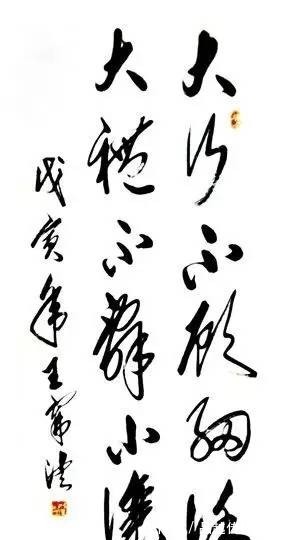 大行不顾细谨
大礼不辞小让
戊寅年王